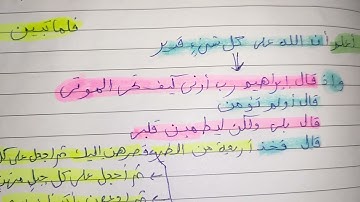 فلما تبين
أعلم أن الله على كل شيء قدير
وإذ قال إبراهيم رب أرني كيف تحي الموتى
قال أولم تؤمن
قال بلى ولكن ليطمئن قلبي
قال فخذ أربعة من الطير فصرهن إليك ثم اجعل على كل
ثم اجعل على كل جبل منهن